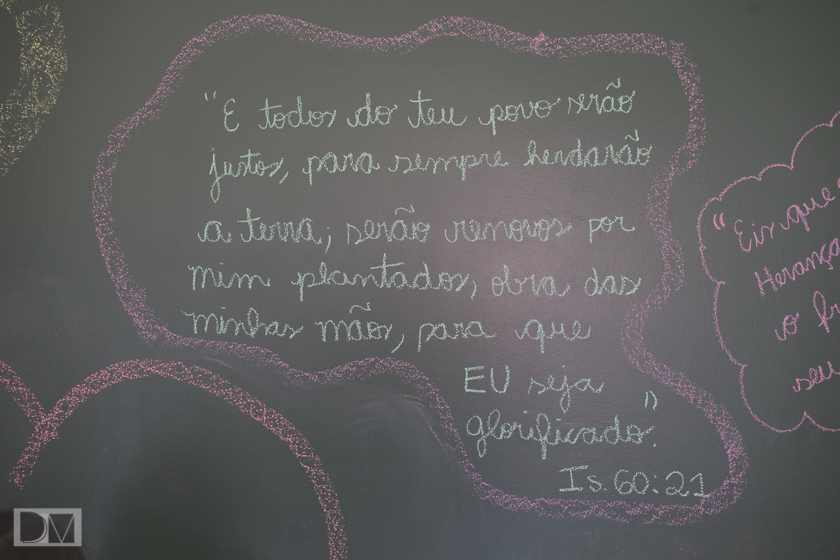 "E todos do teu povo serão
justos, para sempre herdarão
a terra; serão renovos por
mim plantados, obra das
minhas mãos, para que
EU seja
glorificado."
Is. 60:21
"Eis que
Herança
o fr
seu
DM